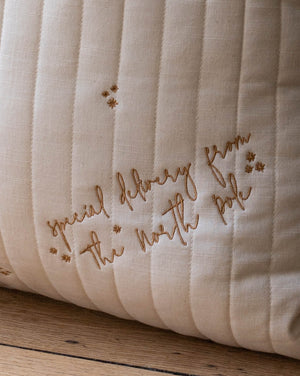 special delivery from
the north pole